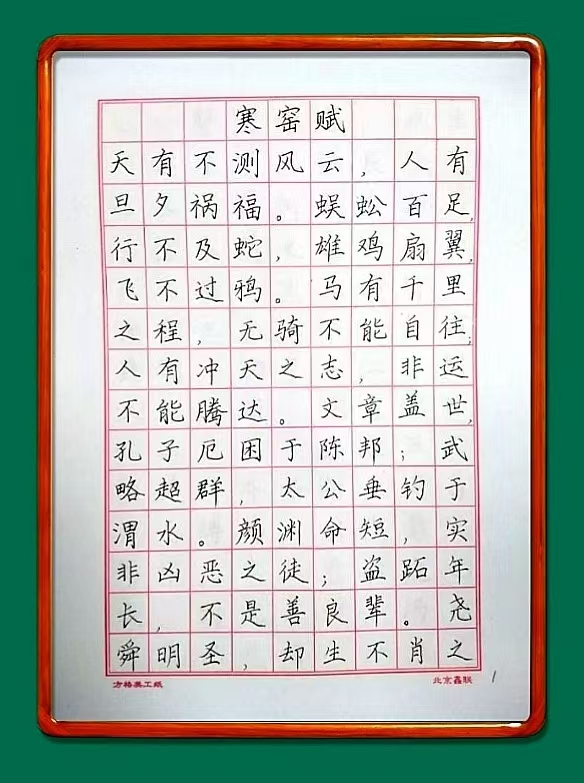 寒窑赋
天有不测风云，人有
旦夕祸福。蜈蚣百足，
行不及蛇，雄鸡扇翼，
飞不过鸦。马有千里
之程，无骑不能自往；
人有冲天之志，非运
不能腾达。文章盖世，
孔子厄困于陈邦；武
略超群，太公垂钓于
渭水。颜渊命短，实
非凶恶之徒；盗跖年
长，不是善良辈。尧
舜明圣，却生不肖之
方格美工纸 北京鑫骰 1